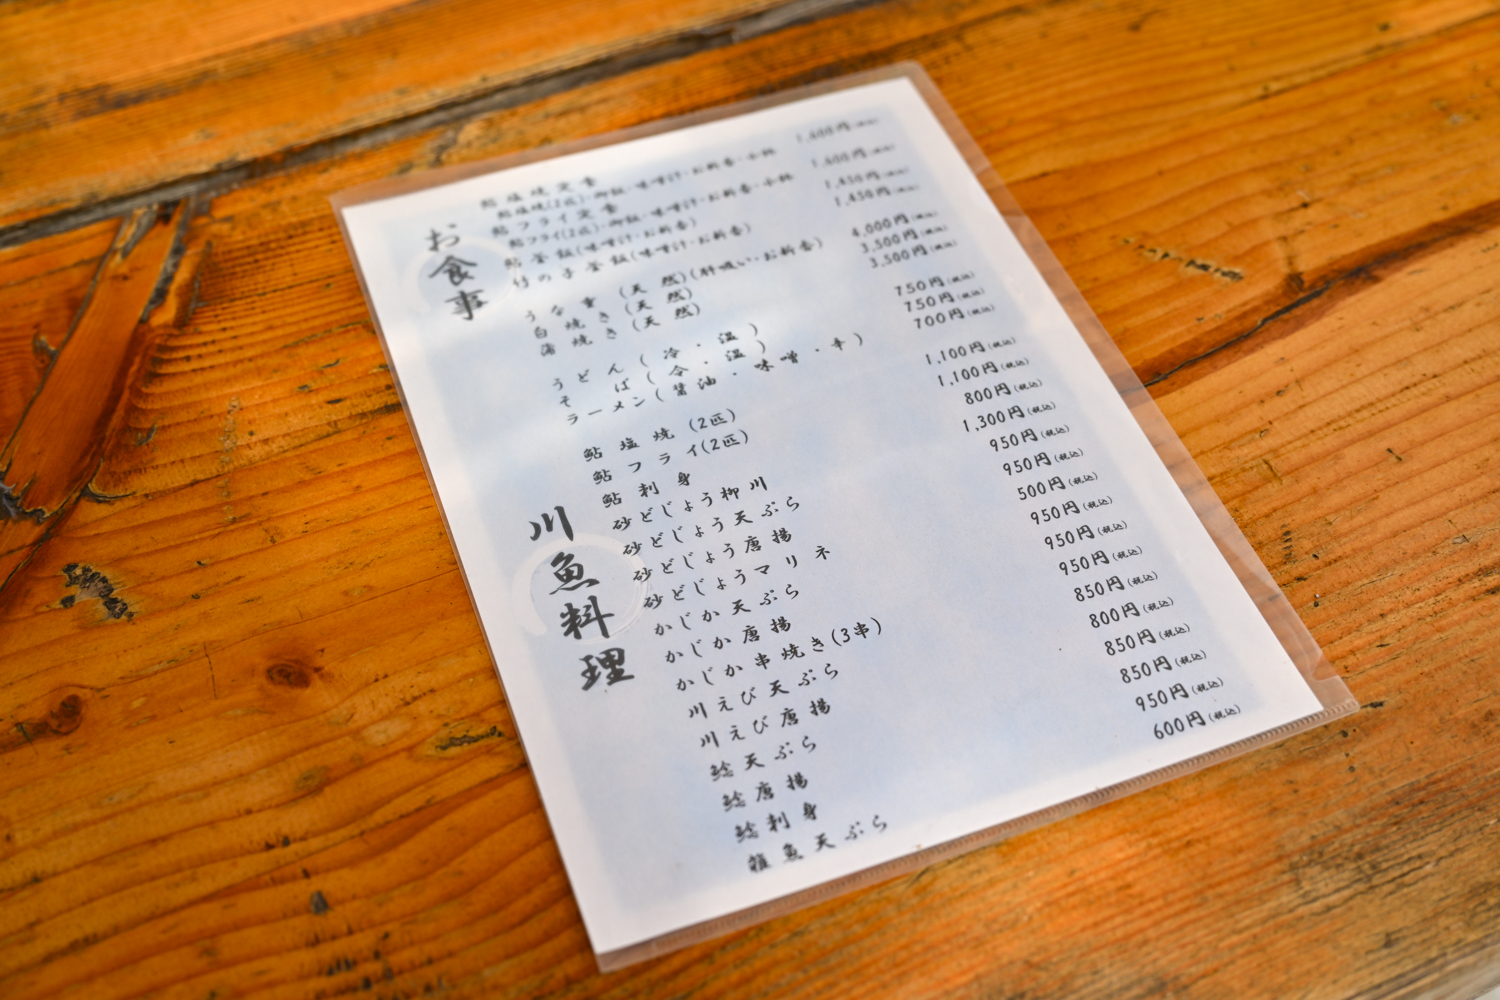 お食事
鮎塩焼定食 1,600円(税込)
鮎塩焼(2匹)・御飯・味噌汁・お新香・小鉢
鮎フライ定食 1,600円(税込)
鮎フライ(2匹)・御飯・味噌汁・お新香・小鉢
鮎釜飯(味噌汁・お新香) 1,450円(税込)
竹の子釜飯(味噌汁・お新香) 1,450円(税込)
うな重(天然)(肝吸い・お新香) 4,000円(税込)
白焼き(天然) 3,500円(税込)
蒲焼き(天然) 3,500円(税込)
うどん(冷・温) 750円(税込)
そば(冷・温) 750円(税込)
ラーメン(醤油・味噌・辛) 700円(税込)
川魚料理
鮎塩焼(2匹) 1,100円(税込)
鮎フライ(2匹) 1,100円(税込)
鮎刺身 800円(税込)
砂どじょう柳川 1,300円(税込)
砂どじょう天ぷら 950円(税込)
砂どじょう唐揚 950円(税込)
砂どじょうマリネ 500円(税込)
かじか天ぷら 950円(税込)
かじか唐揚 950円(税込)
かじか串焼き(3串) 950円(税込)
川えび天ぷら 850円(税込)
川えび唐揚 800円(税込)
鯰天ぷら 850円(税込)
鯰唐揚 850円(税込)
鯰刺身 950円(税込)
雑魚天ぷら 600円(税込)